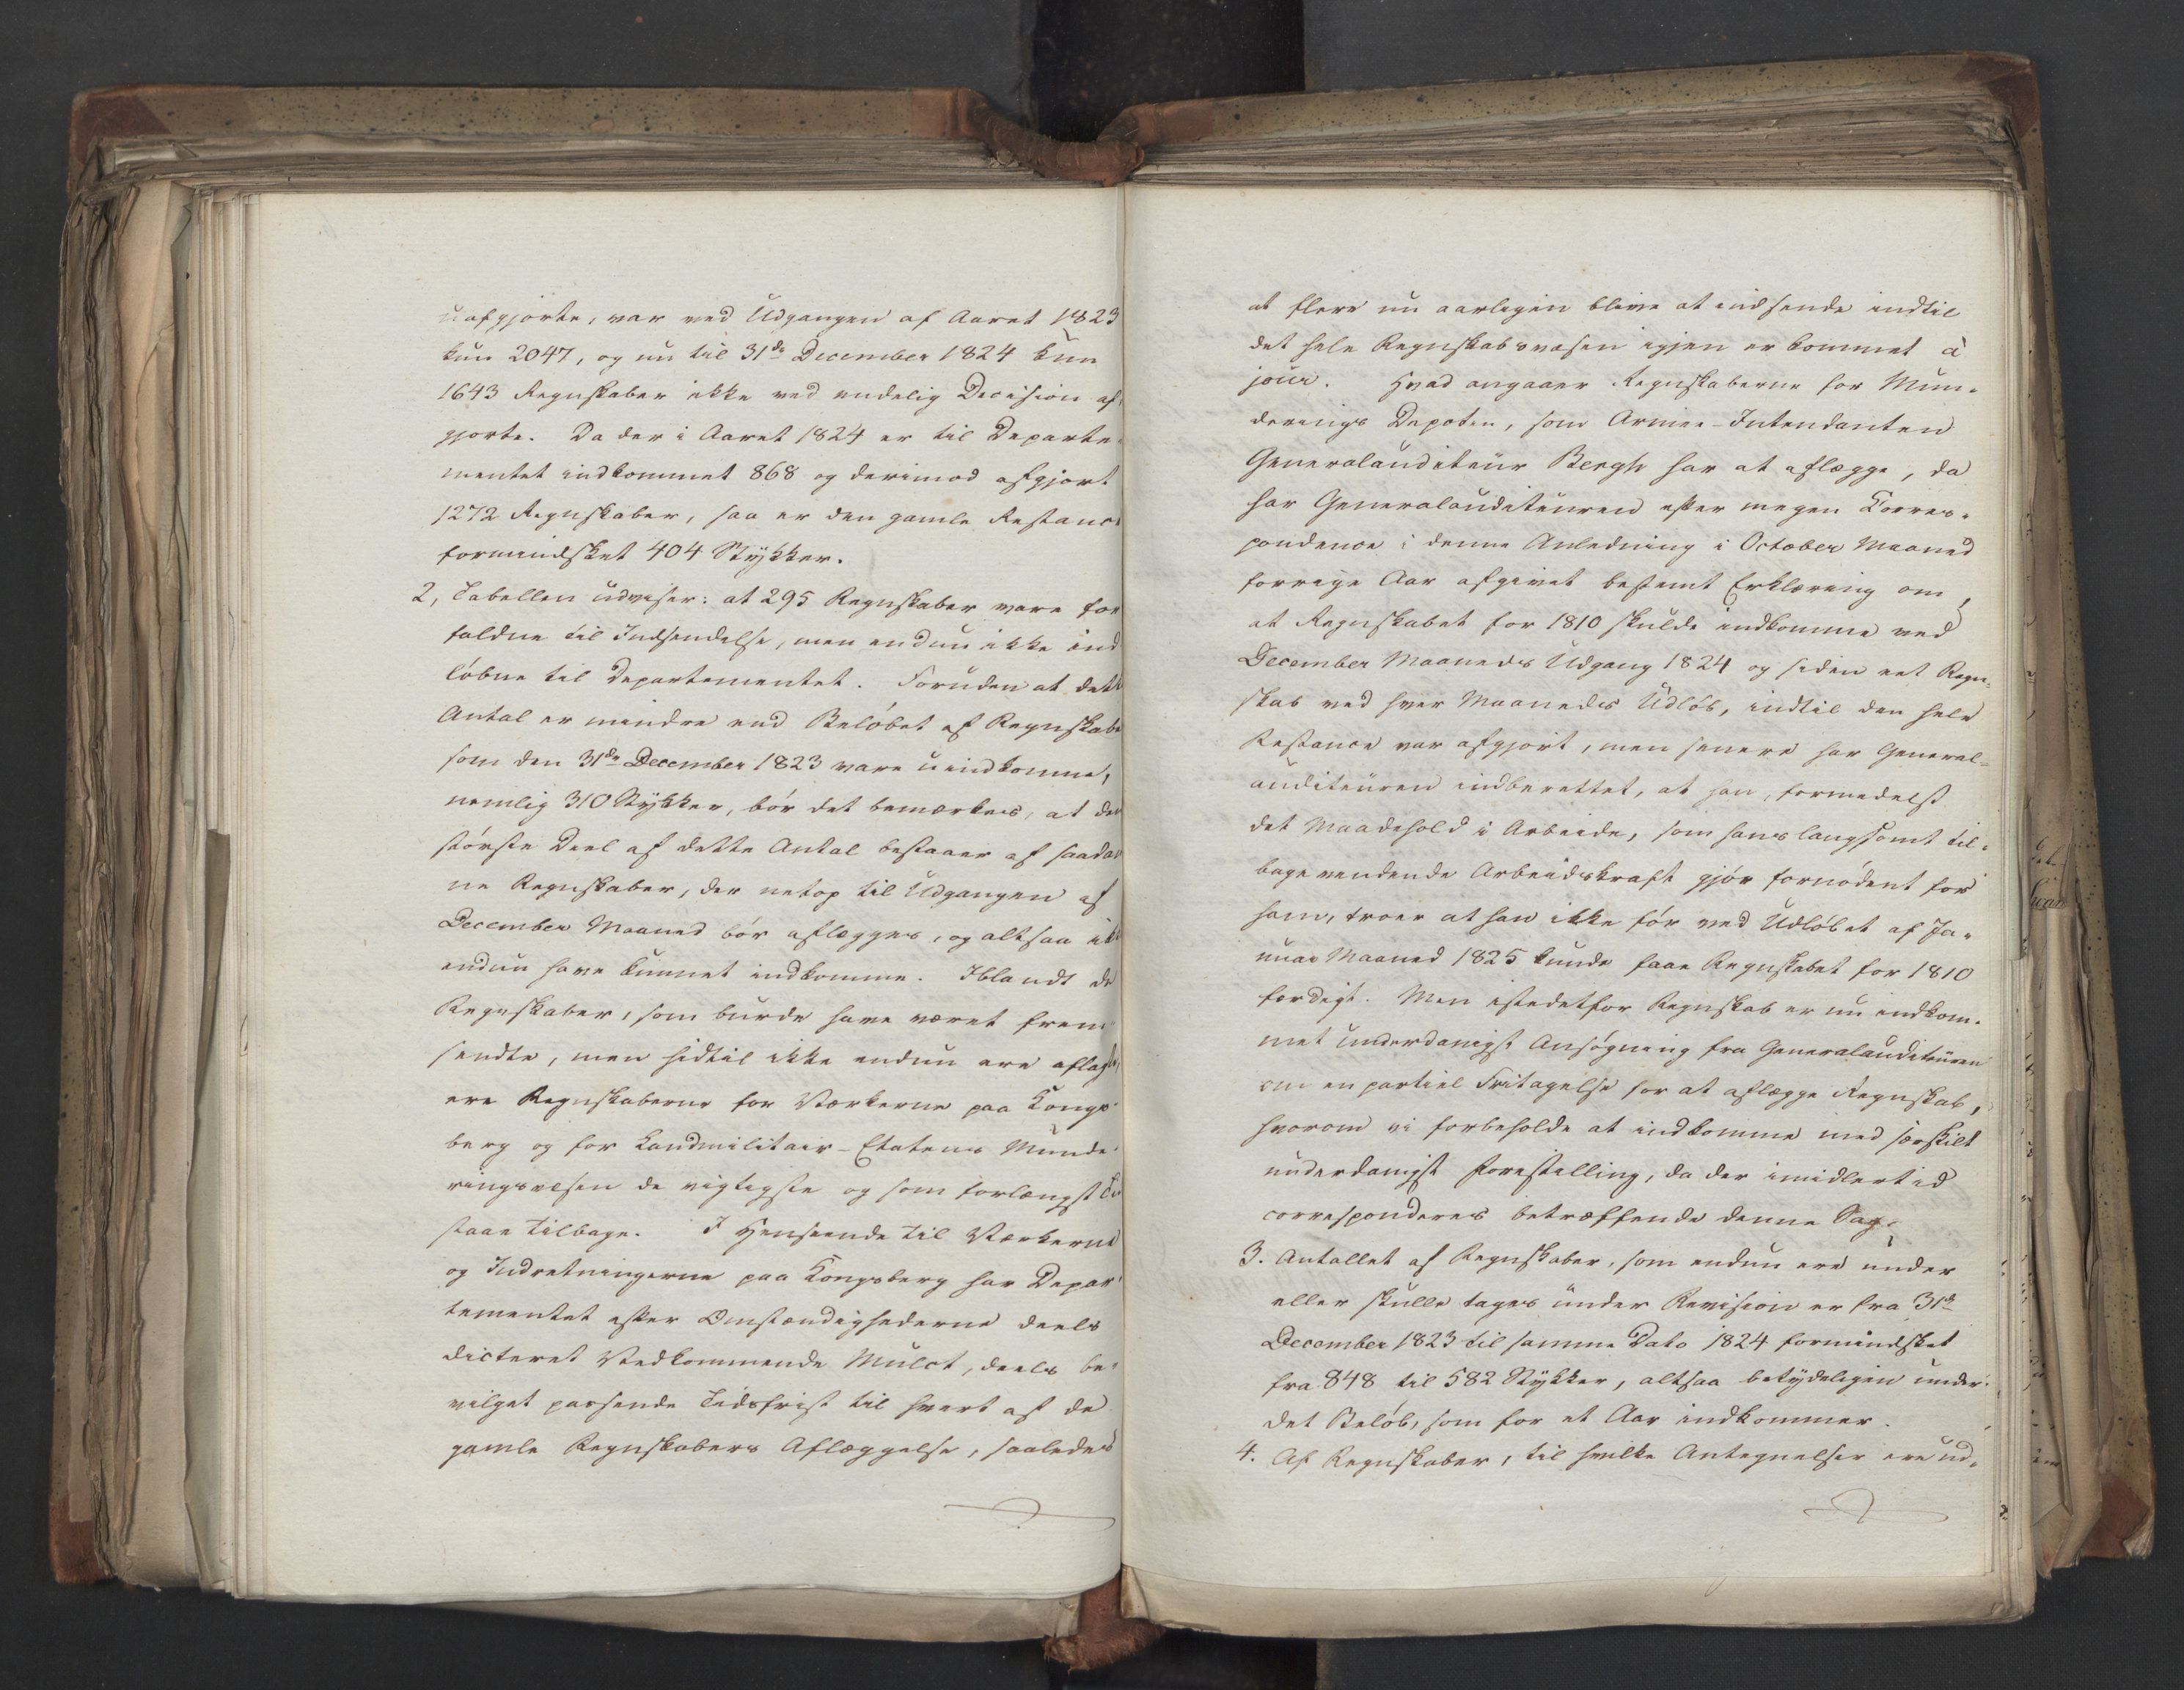 uafgjorte, var ved Udgangen af Aaret 1823
kun 2047, og nu til 31de December 1824 kun
1643 Regnskaber ikke ved endelig Decision af-
gjorte. Da der i Aaret 1824 er til Departe-
mentet indkommet 868 og derimod afgjort
1272 Regnskaber, saa er den gamle Restance
formindsket 404 Stykker.
2, Tabellen udviser: at 295 Regnskaber vare for
faldne til Indsendelse, men endnu ikke ind
løbne til Departementet. Foruden at dette
Antal er mindre end Beløbet af Regnskabe
som den 31de December 1823 vare uindkomne,
nemlig 310 Stykker, bør det bemærkes, at den
største Deel af dette Antal bestaaer af saadan
ne Regnskaber, der netop til Udgangen af
December Maaned bør aflægges, og altsaa ikke
endnu have kunnet indkomme. Iblandt de
Regnskaber, som burde have været frem-
sendte, men hidtil ikke endnu ere aflagte,
ere Regnskaberne for Værkerne paa Kongs-
berg og for Landmilitair-Etatens Munde-
ringsvesen de vigtigste og som forlængst
staae tilbage. I Henseende til Værkerne
og Indretningerne paa Kongsberg har Depar-
tementet efter Omstændighederne deels
dicteret Vedkommende Mulct, deels be-
vilget passende Tidsfrist til hvert af de
gamle Regnskabers Aflæggelse, saaledes
at flere nu aarligen blive at indsende indtil
det hele Regnskabsvæsen igjen er kommet à
jour. Hvad angaaer Regnskaberne for Mun-
derings Depoten, som Armee-Intendanten
Generalauditeur Bergh har at aflægge, da
har Generalauditeuren efter megen Corres-
pondence i denne Anledning i October Maaned
forrige Aar afgivet bestemt Erklæring om,
at Regnskabet for 1810 skulde indkomme ved
December Maaneds Udgang 1824 og siden eet Regn-
skab ved hver Maaneds Udløb, indtil den hele
Restance var afgjort, men senere har General-
auditeuren indberettet, at han, formedelst
det Maadehold i Arbeide, som hans langsomt til-
bagevendende Arbeidskraft gjør fornødent for
ham, troer at han ikke før ved Udløbet af Ja-
nuar Maaned 1825 kunde faae Regnskabet for 1810
færdigt. Men istedetfor Regnskab er nu indkom-
met underdanigst Ansøgning fra Generalauditeuren
om en partiel Fritagelse for at aflægge Regnskab,
hvorom vi forbeholde at indkomme med særskilt
underdanigst Forestilling, da der imidlertid
correspo­nderes betræffende denne Sag.
3. Antallet af Regnskaber, som endnu ere under
eller skulle tages under Revision er fra 31de
December 1823 til samme Dato 1824 formindsket
fra 848 til 582 Stykker, altsaa betydeligen under
det Beløb, som for et Aar indkommer.
4. Af Regnskaber, til hvilke Antegnelser ere ud-